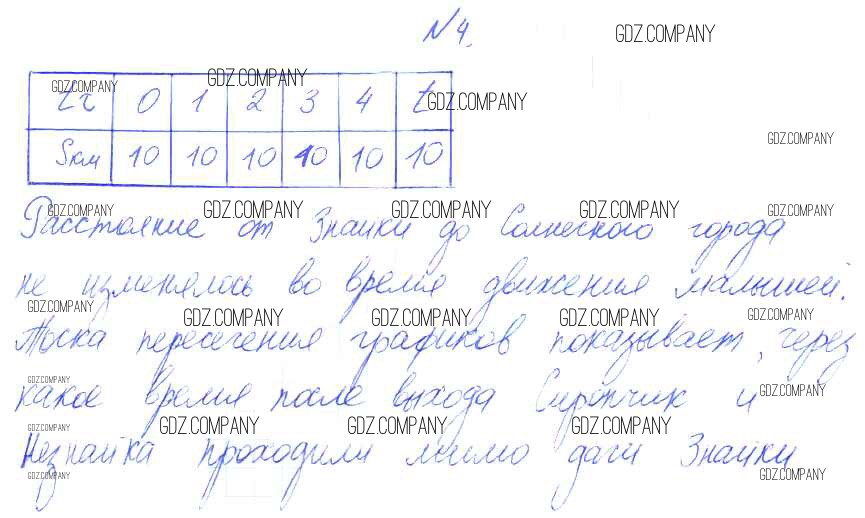 N4.
GDZ.COMPANY
GDZ.COMPANY GDZ.COMPANY
tч 0 1 2 3 4 t
GDZ.COMPANY
GDZ.COMPANY
Sкм 10 10 10 10 10 10
GDZ.COMPANY GDZ.COMPANY GDZ.COMPANY GDZ.COMPANY GDZ.COMPANY
Расстояние от Знайки до Солнечного города
не изменялось во время движения малышей.
GDZ.COMPANY GDZ.COMPANY GDZ.COMPANY GDZ.COMPANY GDZ.COMPANY
Точка пересечения графиков показывает, через
GDZ.COMPANY GDZ.COMPANY
какое время после выхода Сиропчик и
GDZ.COMPANY GDZ.COMPANY GDZ.COMPANY GDZ.COMPANY
Незнайка проходили мимо дачи Знайки
GDZ.COMPANY GDZ.COMPANY